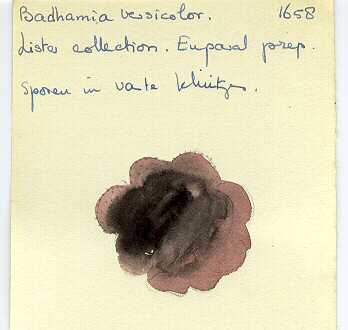 Badhamia versicolor. 1658
Lister collection. Euparal prep.
Sporen in vaste kluitjes.